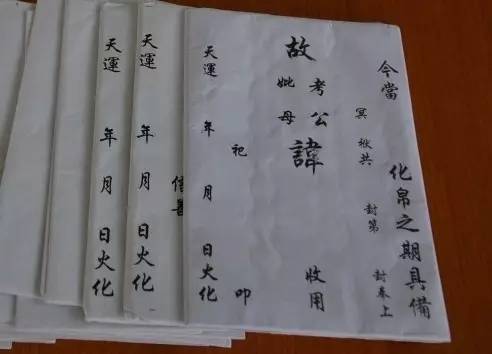 今當 化帛之期具備
冥 楸共 封第 封奉上
故
考公
妣母
諱 收用
祀 叩
天運 年 月 日火化
天運 年 月 日火化
天運 年 月 日火化